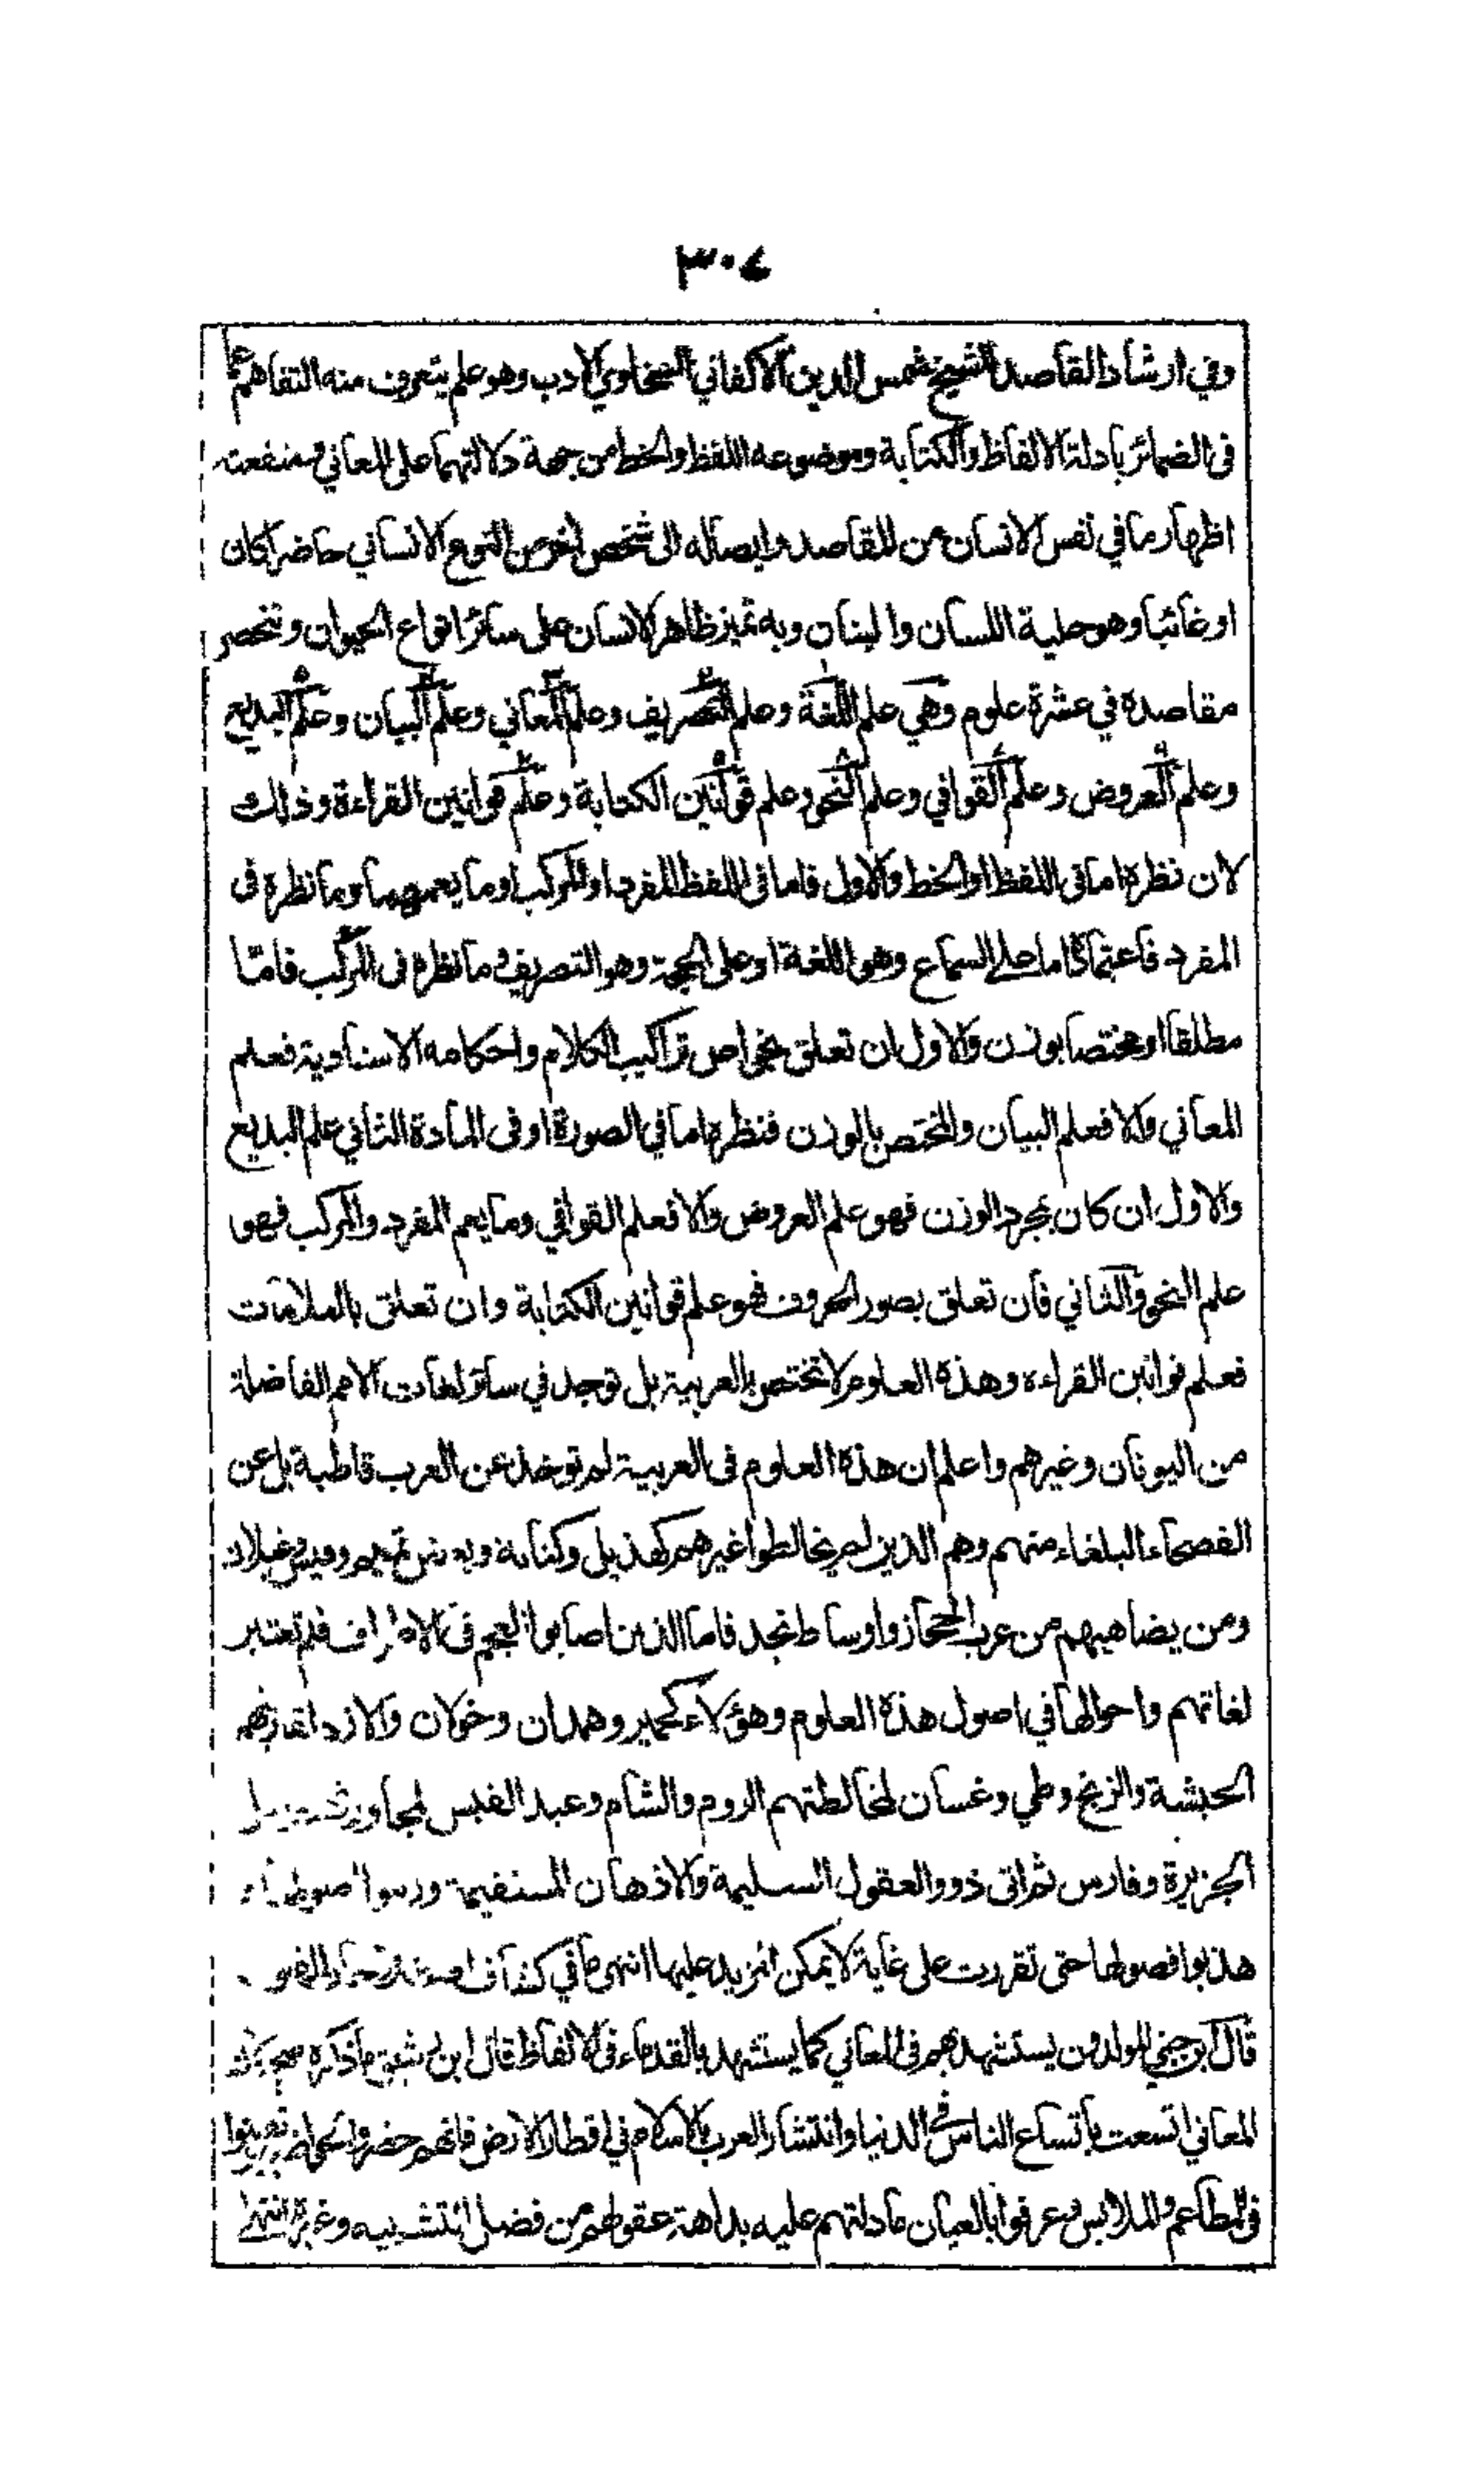 ٣٠٤
وفي ارشاد القاصد للشيخ شمس الدين الاكفاني السخاوي الادب وهو علم يتعرف منه التفاهم عما
فى الضمائر بادلة الالفاظ والكتابة وموضوعه اللفظ والخط من جهة دلالتهما على المعاني ومنفعته
اظهار ما في نفس الانسان من المقاصد وايصاله الى شخص اخر من النوع الانساني حاضرا كان
او غائبا وهو حلية اللسان والبنان وبه تميز ظاهر الانسان على سائر انواع الحيوان وتنحصر
مقاصده في عشرة علوم وهي علم اللغة وعلم التصريف وعلم المعاني وعلم البيان وعلم البديع
وعلم العروض وعلم القوافي وعلم النحو وعلم قوانين الكتابة وعلم قوانين القراءة وذلك
لان نظره اما فى اللفظ او الخط والاول فاما فى اللفظ المفرد او المركب او ما يعمهما وما نظره فى
المفرد فاعتماده اما على السماع وهو اللغة او على الحجة وهو التصريف وما نظره فى المركب فاما
مطلقا او مختصا بوزن والاول ان تعلق بخواص تراكيب الكلام واحكامه الاسنادية فعلم
المعاني والا فعلم البيان والمختص بالوزن فنظره اما في الصورة او فى المادة الثاني علم البديع
والاول ان كان بمجرد الوزن فهو علم العروض والا فعلم القوافي وما يعم المفرد والمركب فهو
علم النحو والثاني فان تعلق بصور الحروف فهو علم قوانين الكتابة وان تعلق بالعلامات
فعلم قوانين القراءه وهذه العلوم لا تختص بالعربية بل توجد في سائر لغات الامم الفاضلة
من اليونان وغيرهم واعلم ان هذه العلوم فى العربية لم توخذ عن العرب قاطبة بل عن
الفصحاء البلغاء منهم وهم الذين لم يخالطوا غيرهم كهذيل وكنانة وبعض تميم وقيس غيلان
ومن يضاهيهم من عرب الحجاز واوساط نجد فاما الذين اصابوا العجم فى الاطراف فلم تعتبر
لغاتهم واحوالها في اصول هذه العلوم وهؤلاء كحمير وهمدان وخولان والازد لمقاربتهم
الحبشة والزنج وطي وغسان لمخالطتهم الروم والشام وعبد القيس لمجاورتهم اهل
الجزيرة وفارس ثم اتى ذووالعقول السليمة والاذهان المستقيمة ورتبوا اصولها و
هذبوا فصولها حتى تقررت على غاية لا يمكن المزيد عليها انتهى ما في كشاف اصطلاحات الفنون
قال ابن جني المولدون يستشهد بهم فى المعاني كما يستشهد بالقدماء فى الالفاظ قال ابن رشيق ما ذكره صحيح لان
المعاني اتسعت باتساع الناس في الدنيا وانتشار العرب بالاسلام في اقطار الارض فانهم حضروا
فى المطاعم والملابس وعرفوا بالعيان ما دلتهم عليه بداهة عقولهم من فضل التشبيه وغيره انتهى